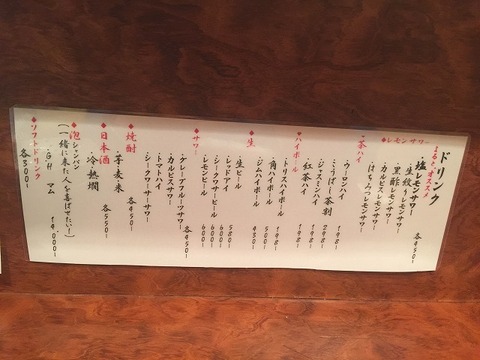 ドリンク
オススメ
◆レモンサワー
・塩レモンサワー 各450-
・生絞りレモンサワー
・黒酢レモンサワー
・カルピスレモンサワー
・はちみつレモンサワー
◆茶ハイ
・ウーロンハイ 198-
・こうばし茶割 298-
・ジャスミンハイ 198-
・紅茶ハイ 198-
◆ハイボール
・トリスハイボール 198-
・角ハイボール 500-
・ジムハイボール 450-
◆生
・生ビール
・レッドアイ 580-
・シークワサービール 600-
・レモンビール 600-
◆サワー
・グレープフルーツサワー 各450-
・カルピスサワー
・トマトハイ
・シークワーサーサワー
◆焼酎
・芋麦米 各450-
◆日本酒
・冷熱燗 各550-
◆泡シャンパン
(一緒に来た人を喜ばせたい!)
・G.H マム 14,000-
◆ソフトドリンク
各300-